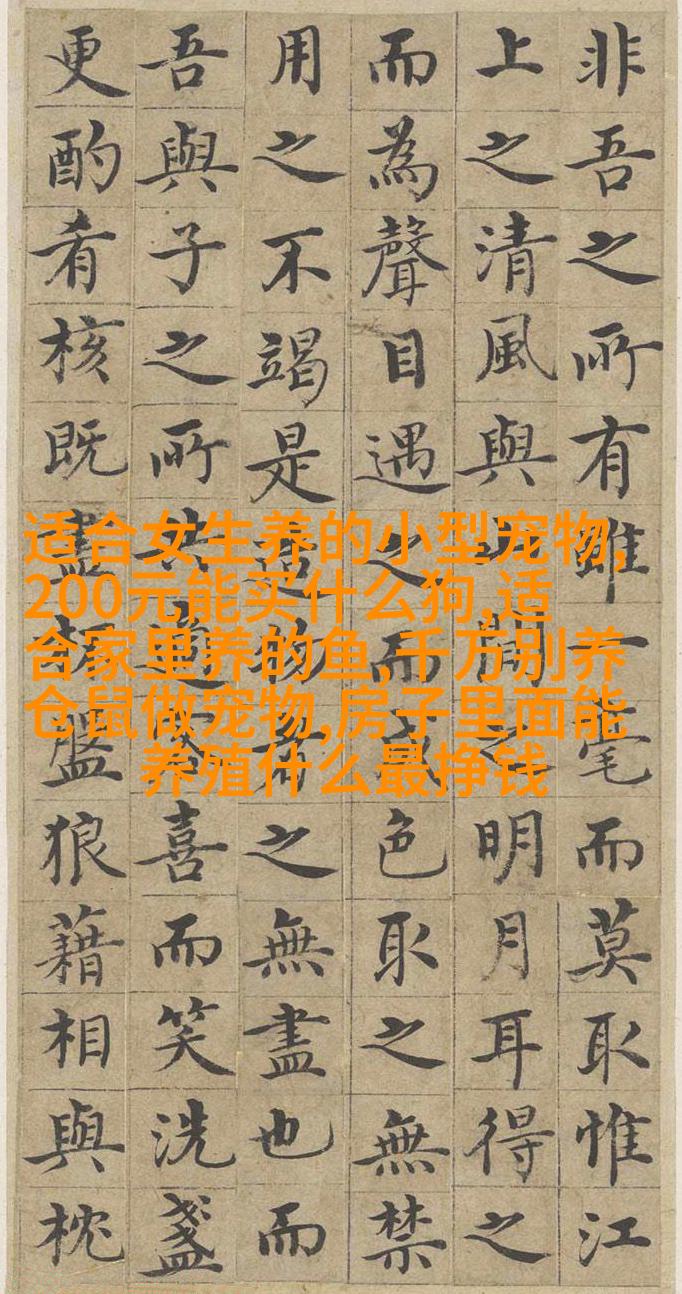 非吾之所有雖一毫而莫取惟江
上之清風與山間之明月耳得之
而為聲目遇之而成色取之無禁
用之不竭是造物者之無盡也而
吾與子之所共適客喜而笑洗盞
更酌肴核既盡杯盤狼藉相與枕
适合女生养的小型宠物,
200元能买什么狗,适
合家里养的鱼,千万别养
仓鼠做宠物,房子里面能
养殖什么最挣钱